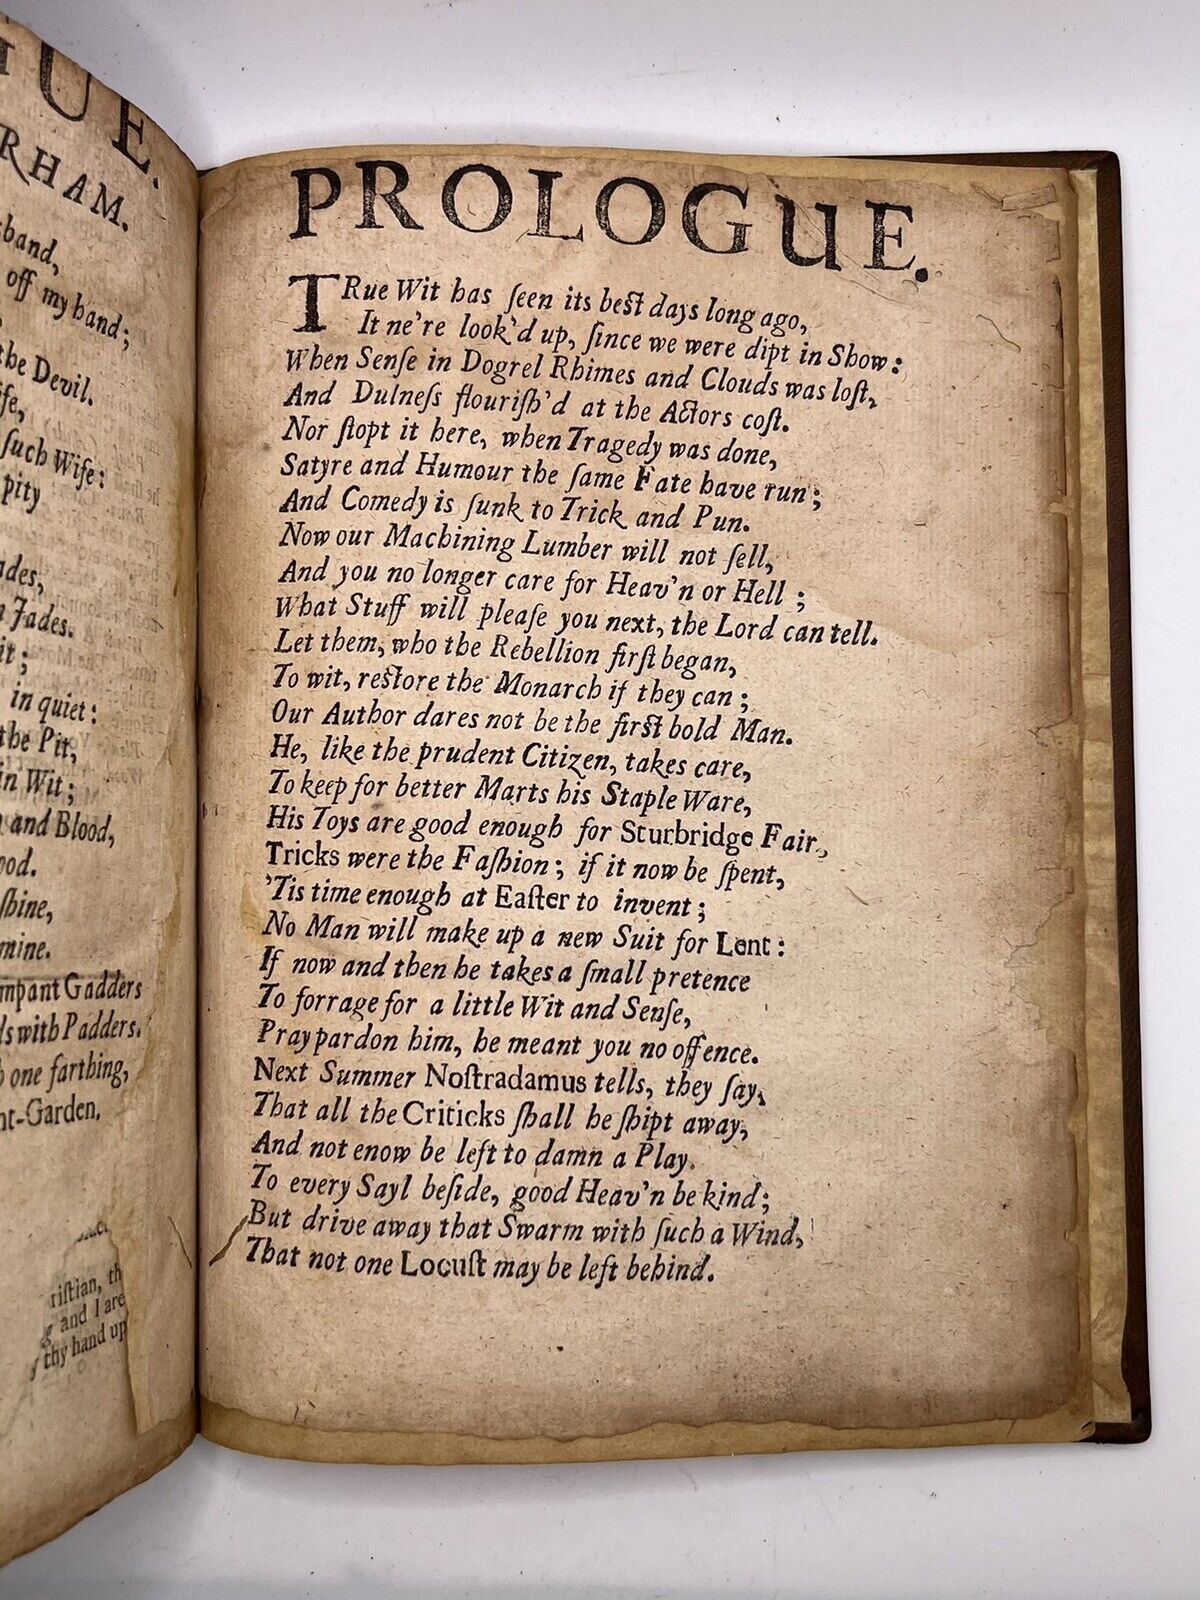 HUE.
RHAM.
sband,
off my hand;
the Devil.
ife,
such Wife:
pity
ades,
n Jades.
it;
in quiet:
the Pit,
in Wit;
and Blood,
ood.
shine,
mine.
mpant Gadders
ds with Padders.
one farthing,
nt-Garden.
riſtian, th
g and I are
thy hand up
PROLOGUE.
TRue Wit has ſeen its beſt days long ago,
It ne're look'd up, ſince we were dipt in Show:
When Senſe in Dogrel Rhimes and Clouds was loſt,
And Dulneſs flouriſh'd at the Actors coſt.
Nor ſtopt it here, when Tragedy was done,
Satyre and Humour the ſame Fate have run;
And Comedy is ſunk to Trick and Pun.
Now our Machining Lumber will not ſell,
And you no longer care for Heav'n or Hell;
What Stuff will pleaſe you next, the Lord can tell.
Let them, who the Rebellion firſt began,
To wit, reſtore the Monarch if they can;
Our Author dares not be the firſt bold Man.
He, like the prudent Citizen, takes care,
To keep for better Marts his Staple Ware,
His Toys are good enough for Sturbridge Fair.
Tricks were the Faſhion; if it now be ſpent,
'Tis time enough at Eaſter to invent;
No Man will make up a new Suit for Lent:
If now and then he takes a ſmall pretence
To forrage for a little Wit and Senſe,
Pray pardon him, he meant you no offence.
Next Summer Noſtradamus tells, they ſay,
That all the Criticks ſhall be ſhipt away,
And not enow be left to damn a Play.
To every Sayl beſide, good Heav'n be kind;
But drive away that Swarm with ſuch a Wind,
That not one Locuſt may be left behind.